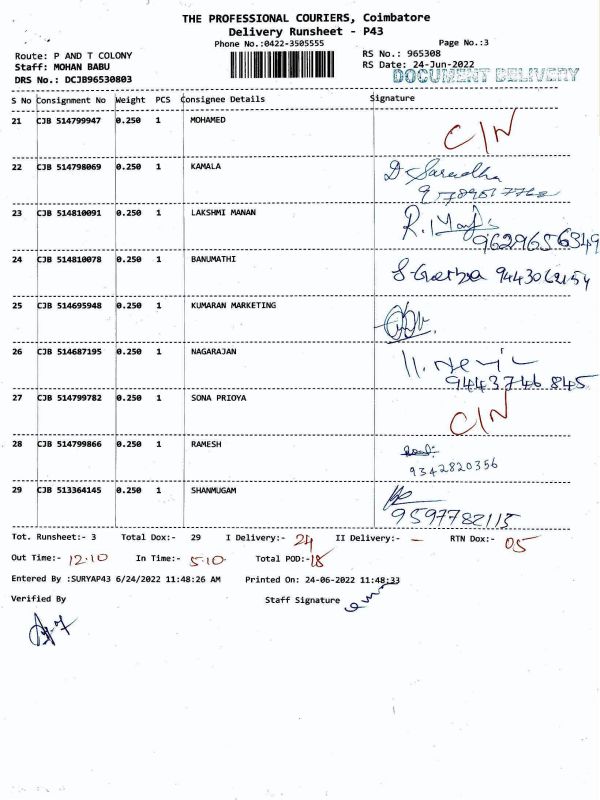 THE PROFESSIONAL COURIERS, Coimbatore
Delivery Runsheet - P43
Phone No.:0422-3505555
Page No.:3
Route: P AND T COLONY
RS No.: 965308
Staff: MOHAN BABU
RS Date: 24-Jun-2022
DRS No.: DCJB96530803
DOCUMENT DELIVERY
S No Consignment No Weight PCS Consignee Details Signature
21 CJB 514799947 0.250 1 MOHAMED C/N
22 CJB 514798069 0.250 1 KAMALA
23 CJB 514810091 0.250 1 LAKSHMI MANAN
9629656349
24 CJB 514810078 0.250 1 BANUMATHI
25 CJB 514695948 0.250 1 KUMARAN MARKETING
26 CJB 514687195 0.250 1 NAGARAJAN
9443746845
27 CJB 514799782 0.250 1 SONA PRIOYA C/N
28 CJB 514799866 0.250 1 RAMESH
9342820356
29 CJB 513364145 0.250 1 SHANMUGAM
9597782115
Tot. Runsheet:- 3 Total Dox:- 29 I Delivery:- 24 II Delivery:- - RTN Dox:- 05
Out Time:- 12.10 In Time:- 5.10. Total POD:-18
Entered By :SURYAP43 6/24/2022 11:48:26 AM Printed On: 24-06-2022 11:48:33
Verified By Staff Signature